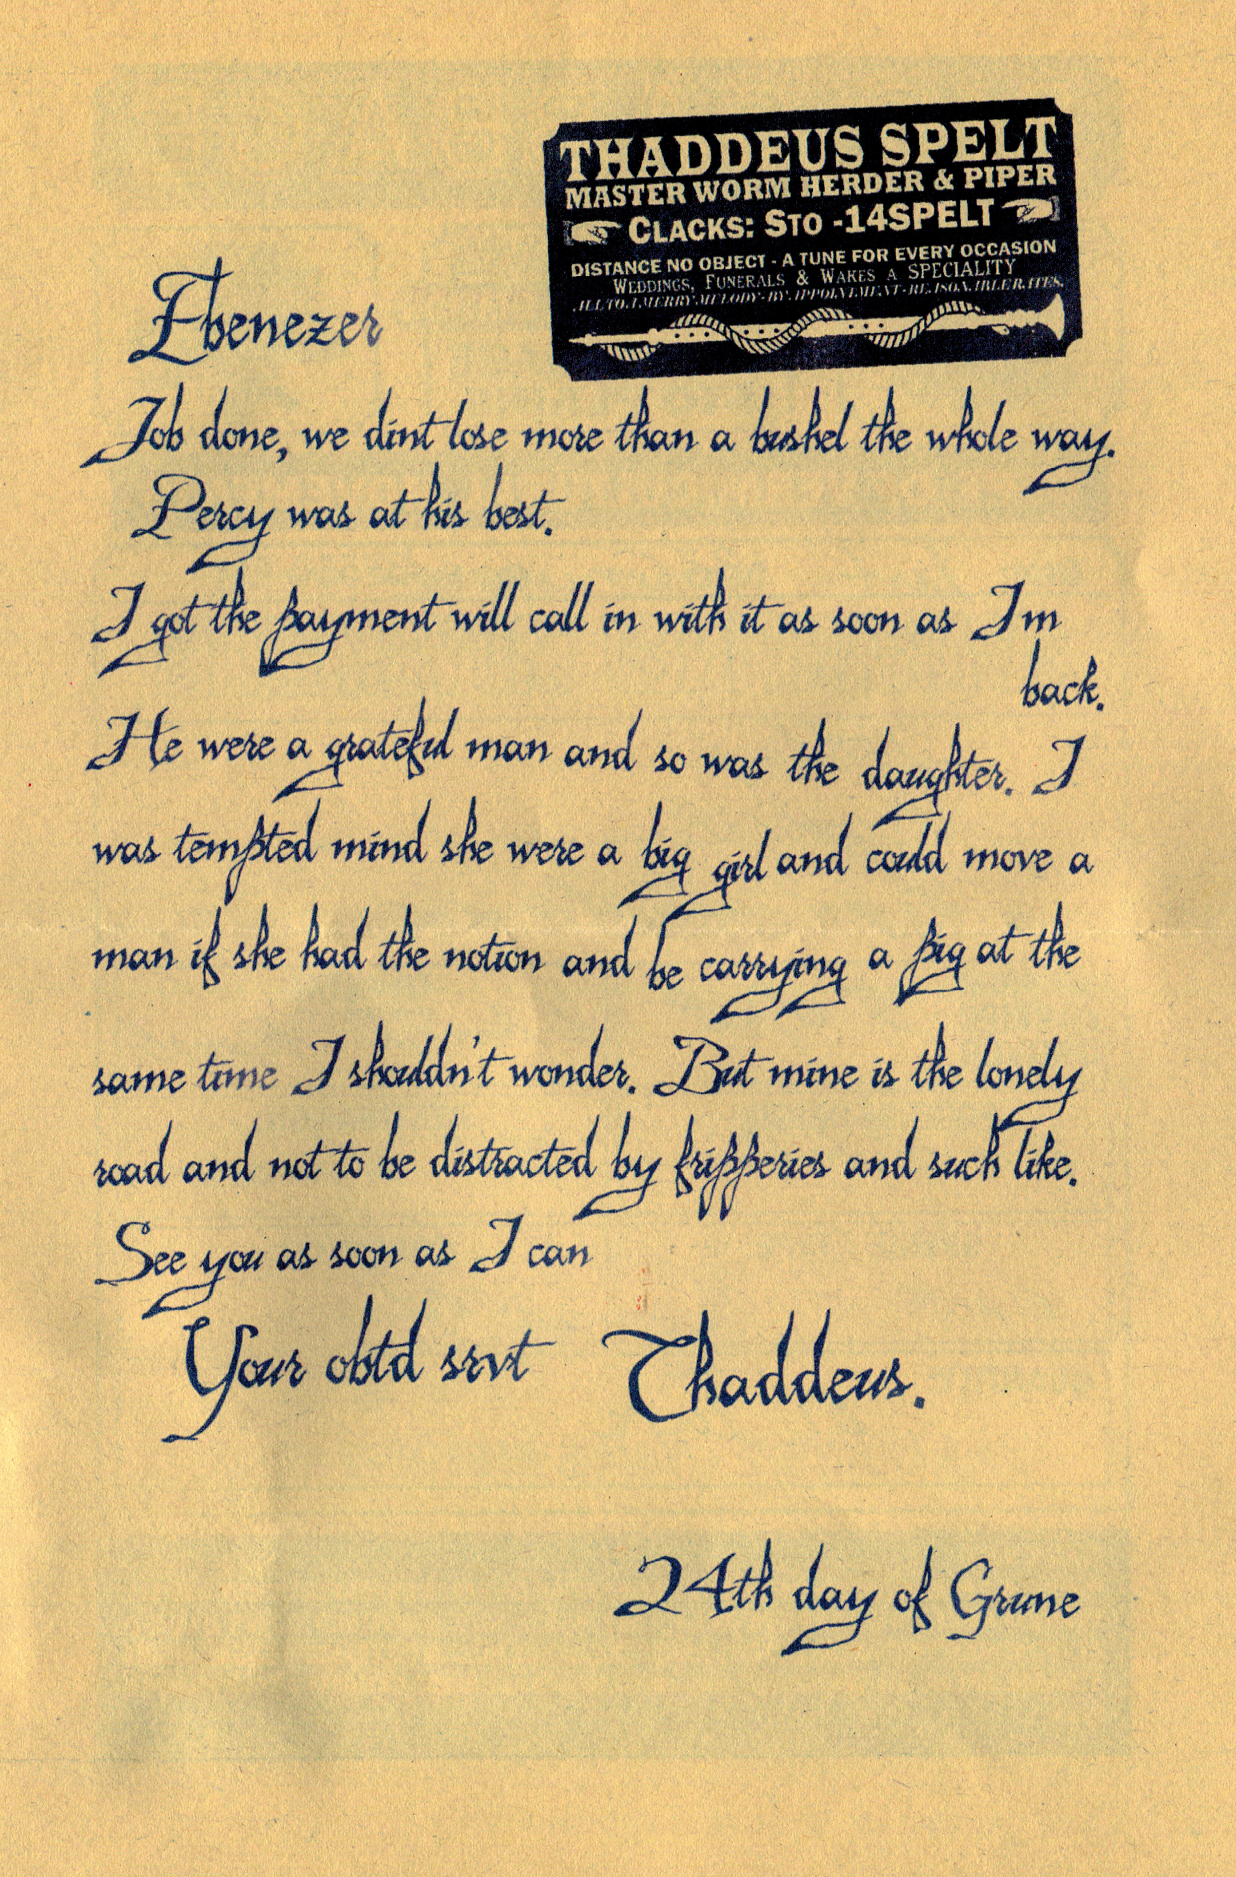 THADDEUS SPELT
MASTER WORM HERDER & PIPER
CLACKS: STO -14SPELT
DISTANCE NO OBJECT - A TUNE FOR EVERY OCCASION
WEDDINGS, FUNERALS & WAKES A SPECIALITY
MERRY MELODY BY
Ebenezer
Job done, we dint lose more than a bushel the whole way.
Percy was at his best.
I got the payment will call in with it as soon as Im
back.
He were a grateful man and so was the daughter. I
was tempted mind she were a big girl and could move a
man if she had the notion and be carrying a pig at the
same time I shouldn't wonder. But mine is the lonely
road and not to be distracted by fripperies and such like.
See you as soon as I can
Your obtd srvt Thaddeus.
24th day of Grune